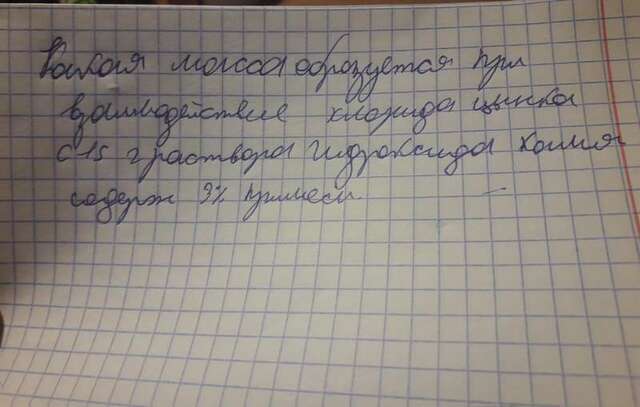 Какая масса образуется при
взаимодействие хлорида цинка
с 15 г раствора гидроксида калия
содерж 9% примеси